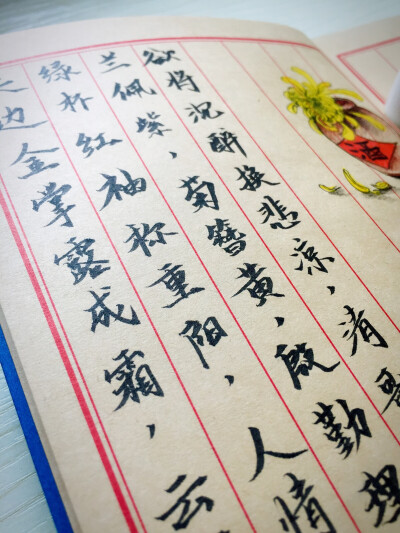 边金掌露成霜，云
绿杯红袖称重阳，人情
兰佩紫，菊簪黄，殷勤理
欲将沉醉换悲凉，清
酒